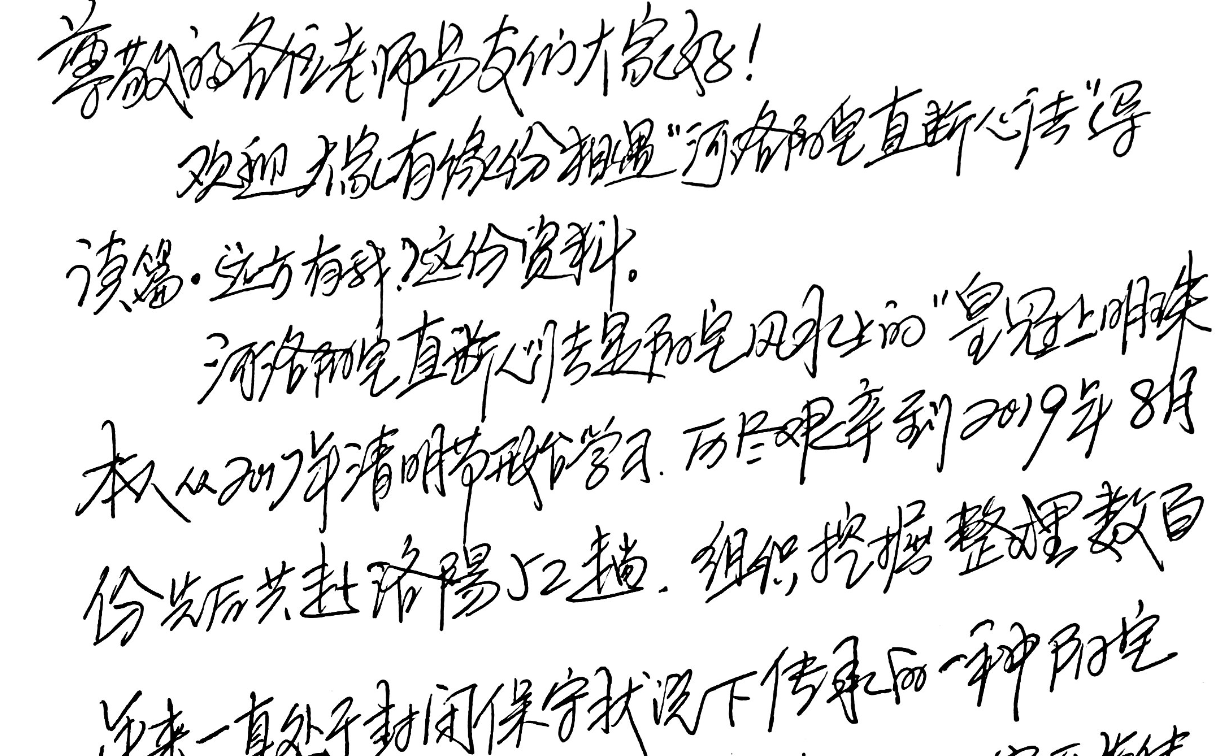 尊敬的各位老师易友们大家好！
欢迎大家有缘份相遇“河洛阴宅直断心法”导
读篇·远方有我？这份资料。
河洛阴宅直断心法是阴宅风水上的“皇冠上明珠
本人从2017年清明节开始学习.历尽艰辛到2019年8月
份先后共赴洛陽52趟.组织挖掘整理数百
年来一直处于封闭保守状况下传承的一种阴宅